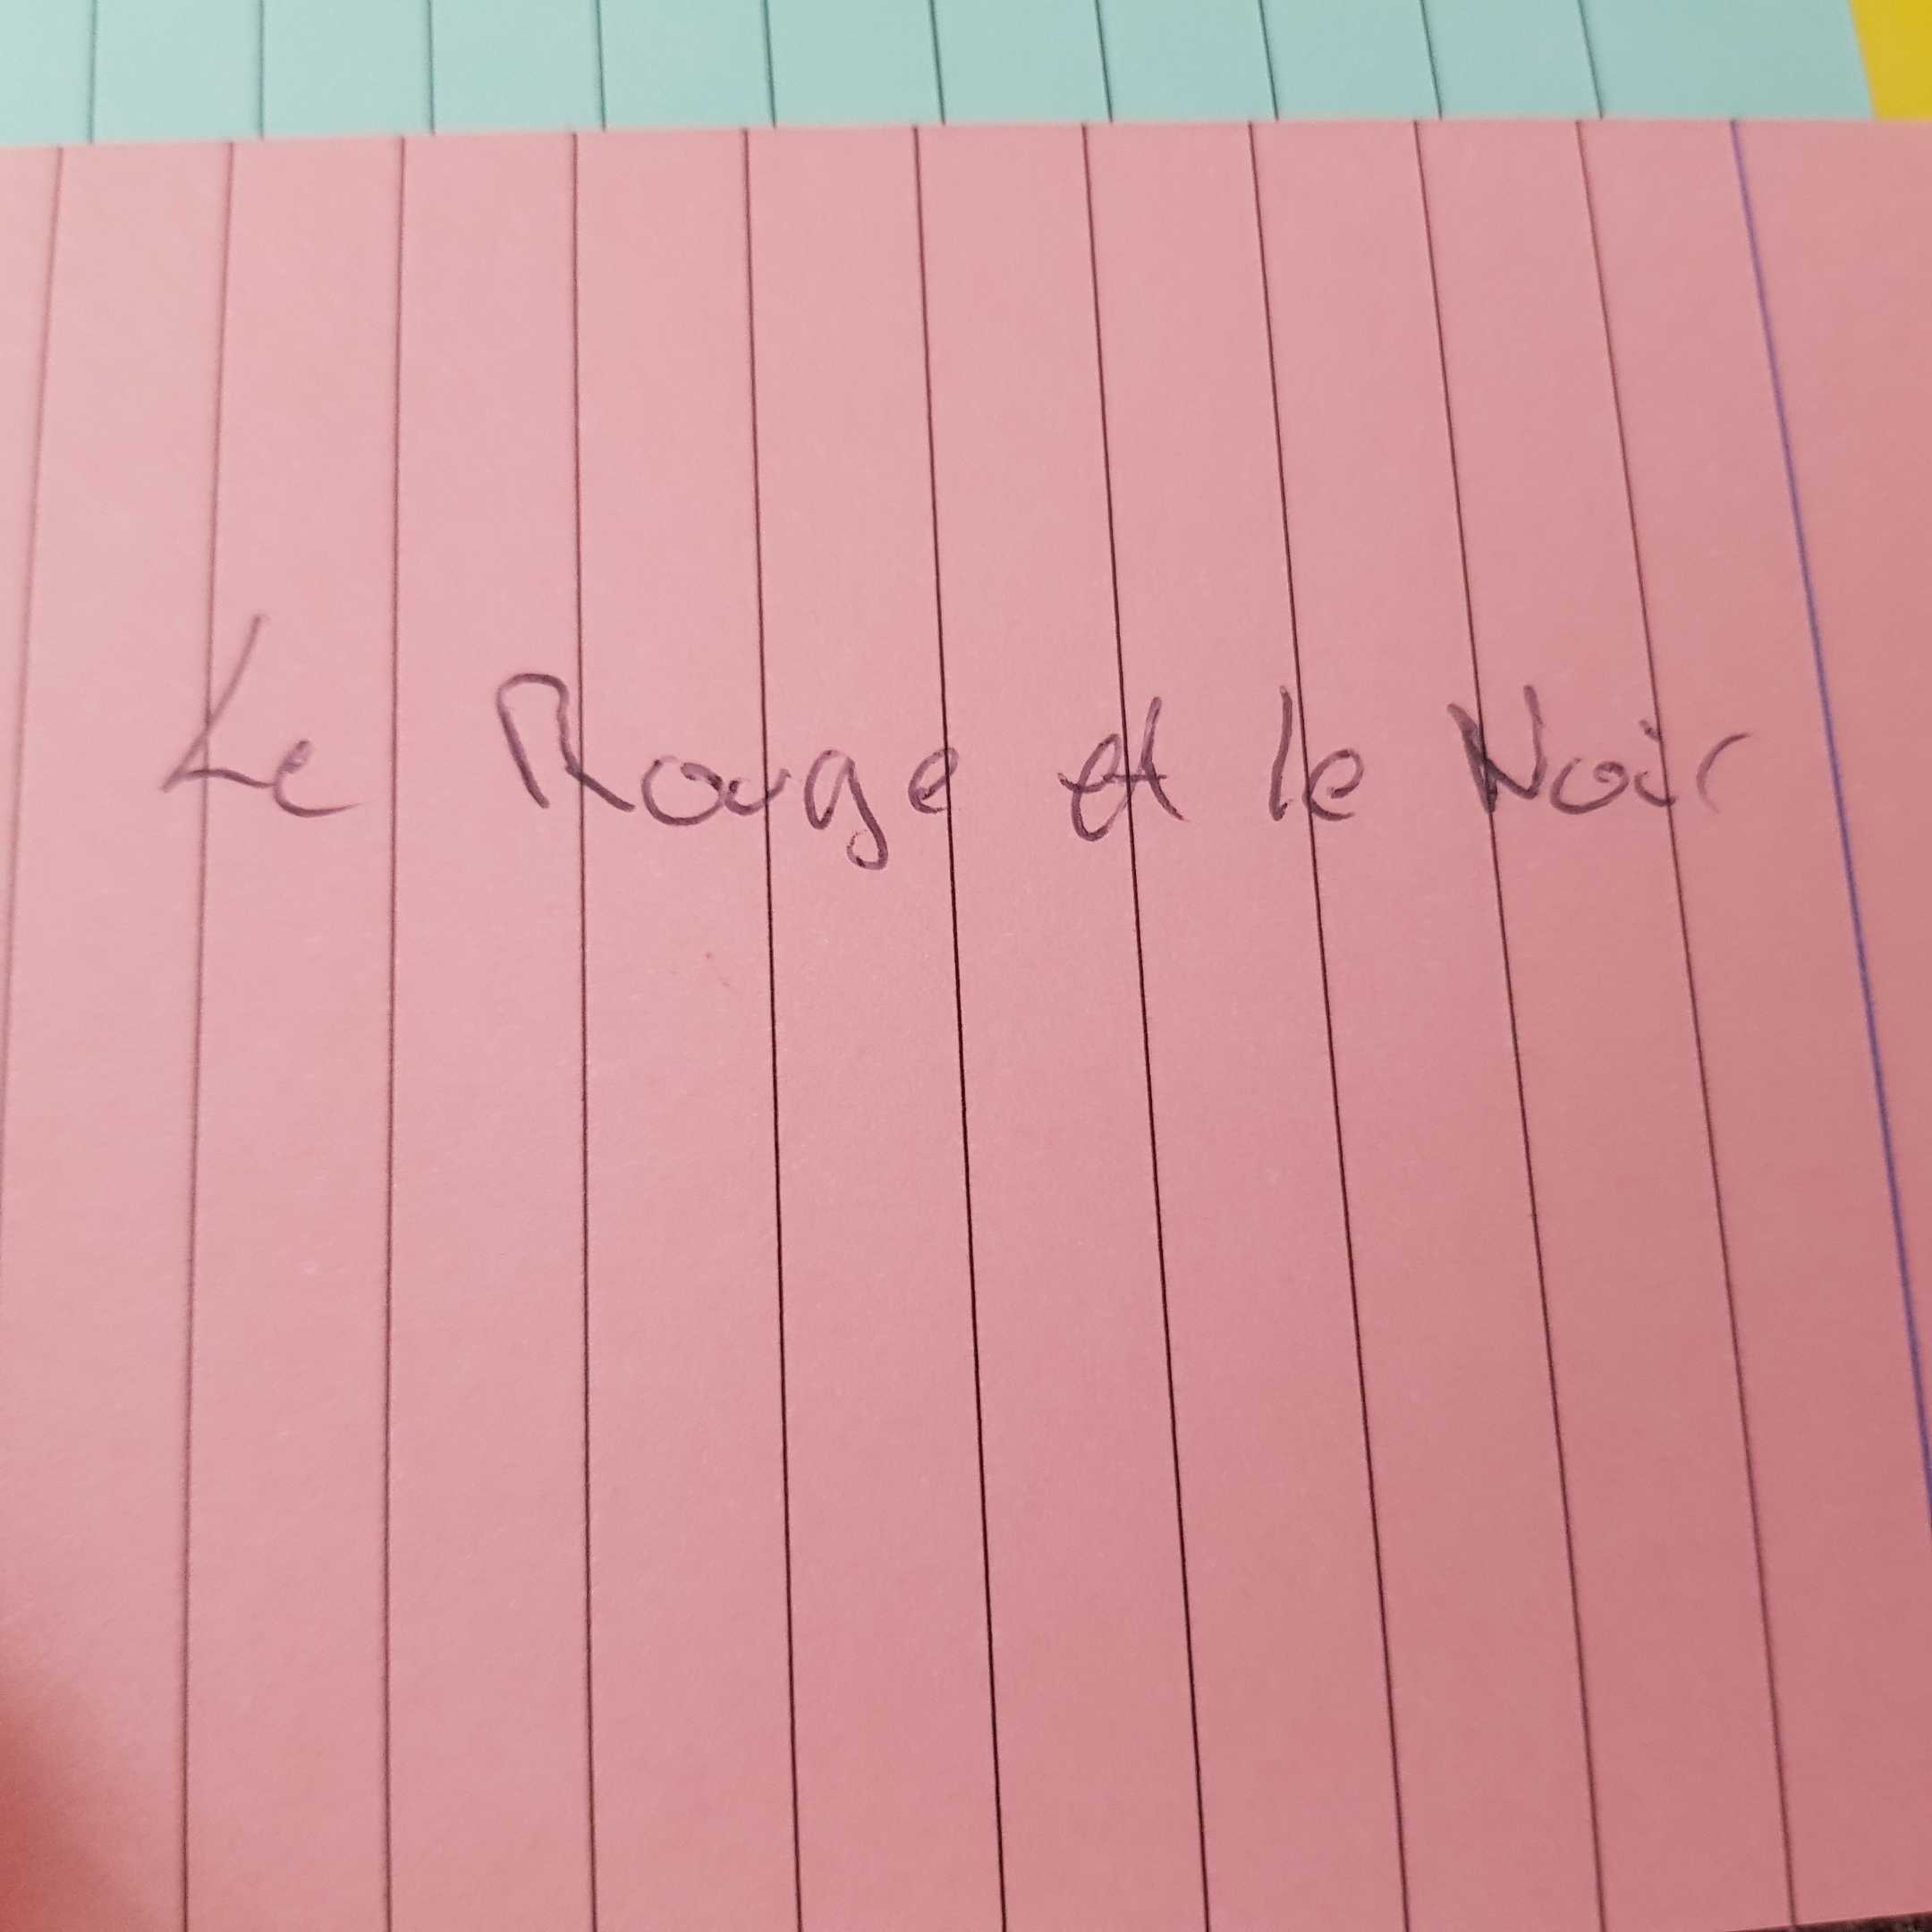 Le Rouge et le Noir